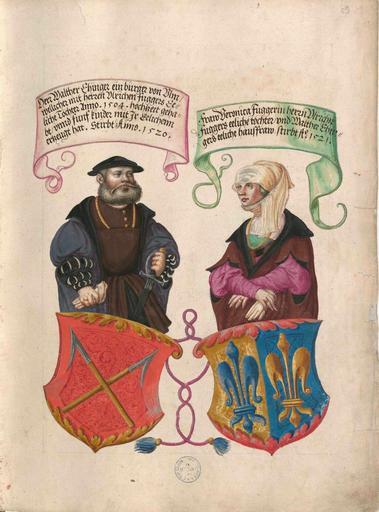 Herr Walther Ehinger ein burger von Ulm
welcher mit herren Ulrichen Fuggers Ee-
liche Tochter Anno. 1504. hochzeit geha-
bt, vnnd fünf kinder mit Jr Eelichenn
erzeugt hat. Stirbt Anno. 1520.
Fraw Veronica Fuggerin herrn Ulrichen
Fuggers eeliche tochter vnd Walther Ehin-
gers eeliche hausfraw stirbt A° 1521.